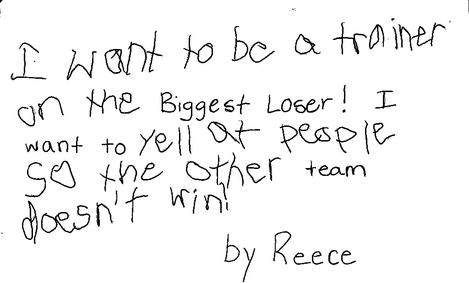 I want to be a trainer
on the Biggest Loser! I
want to yell at people
so the other team
doesn't win!
by Reece